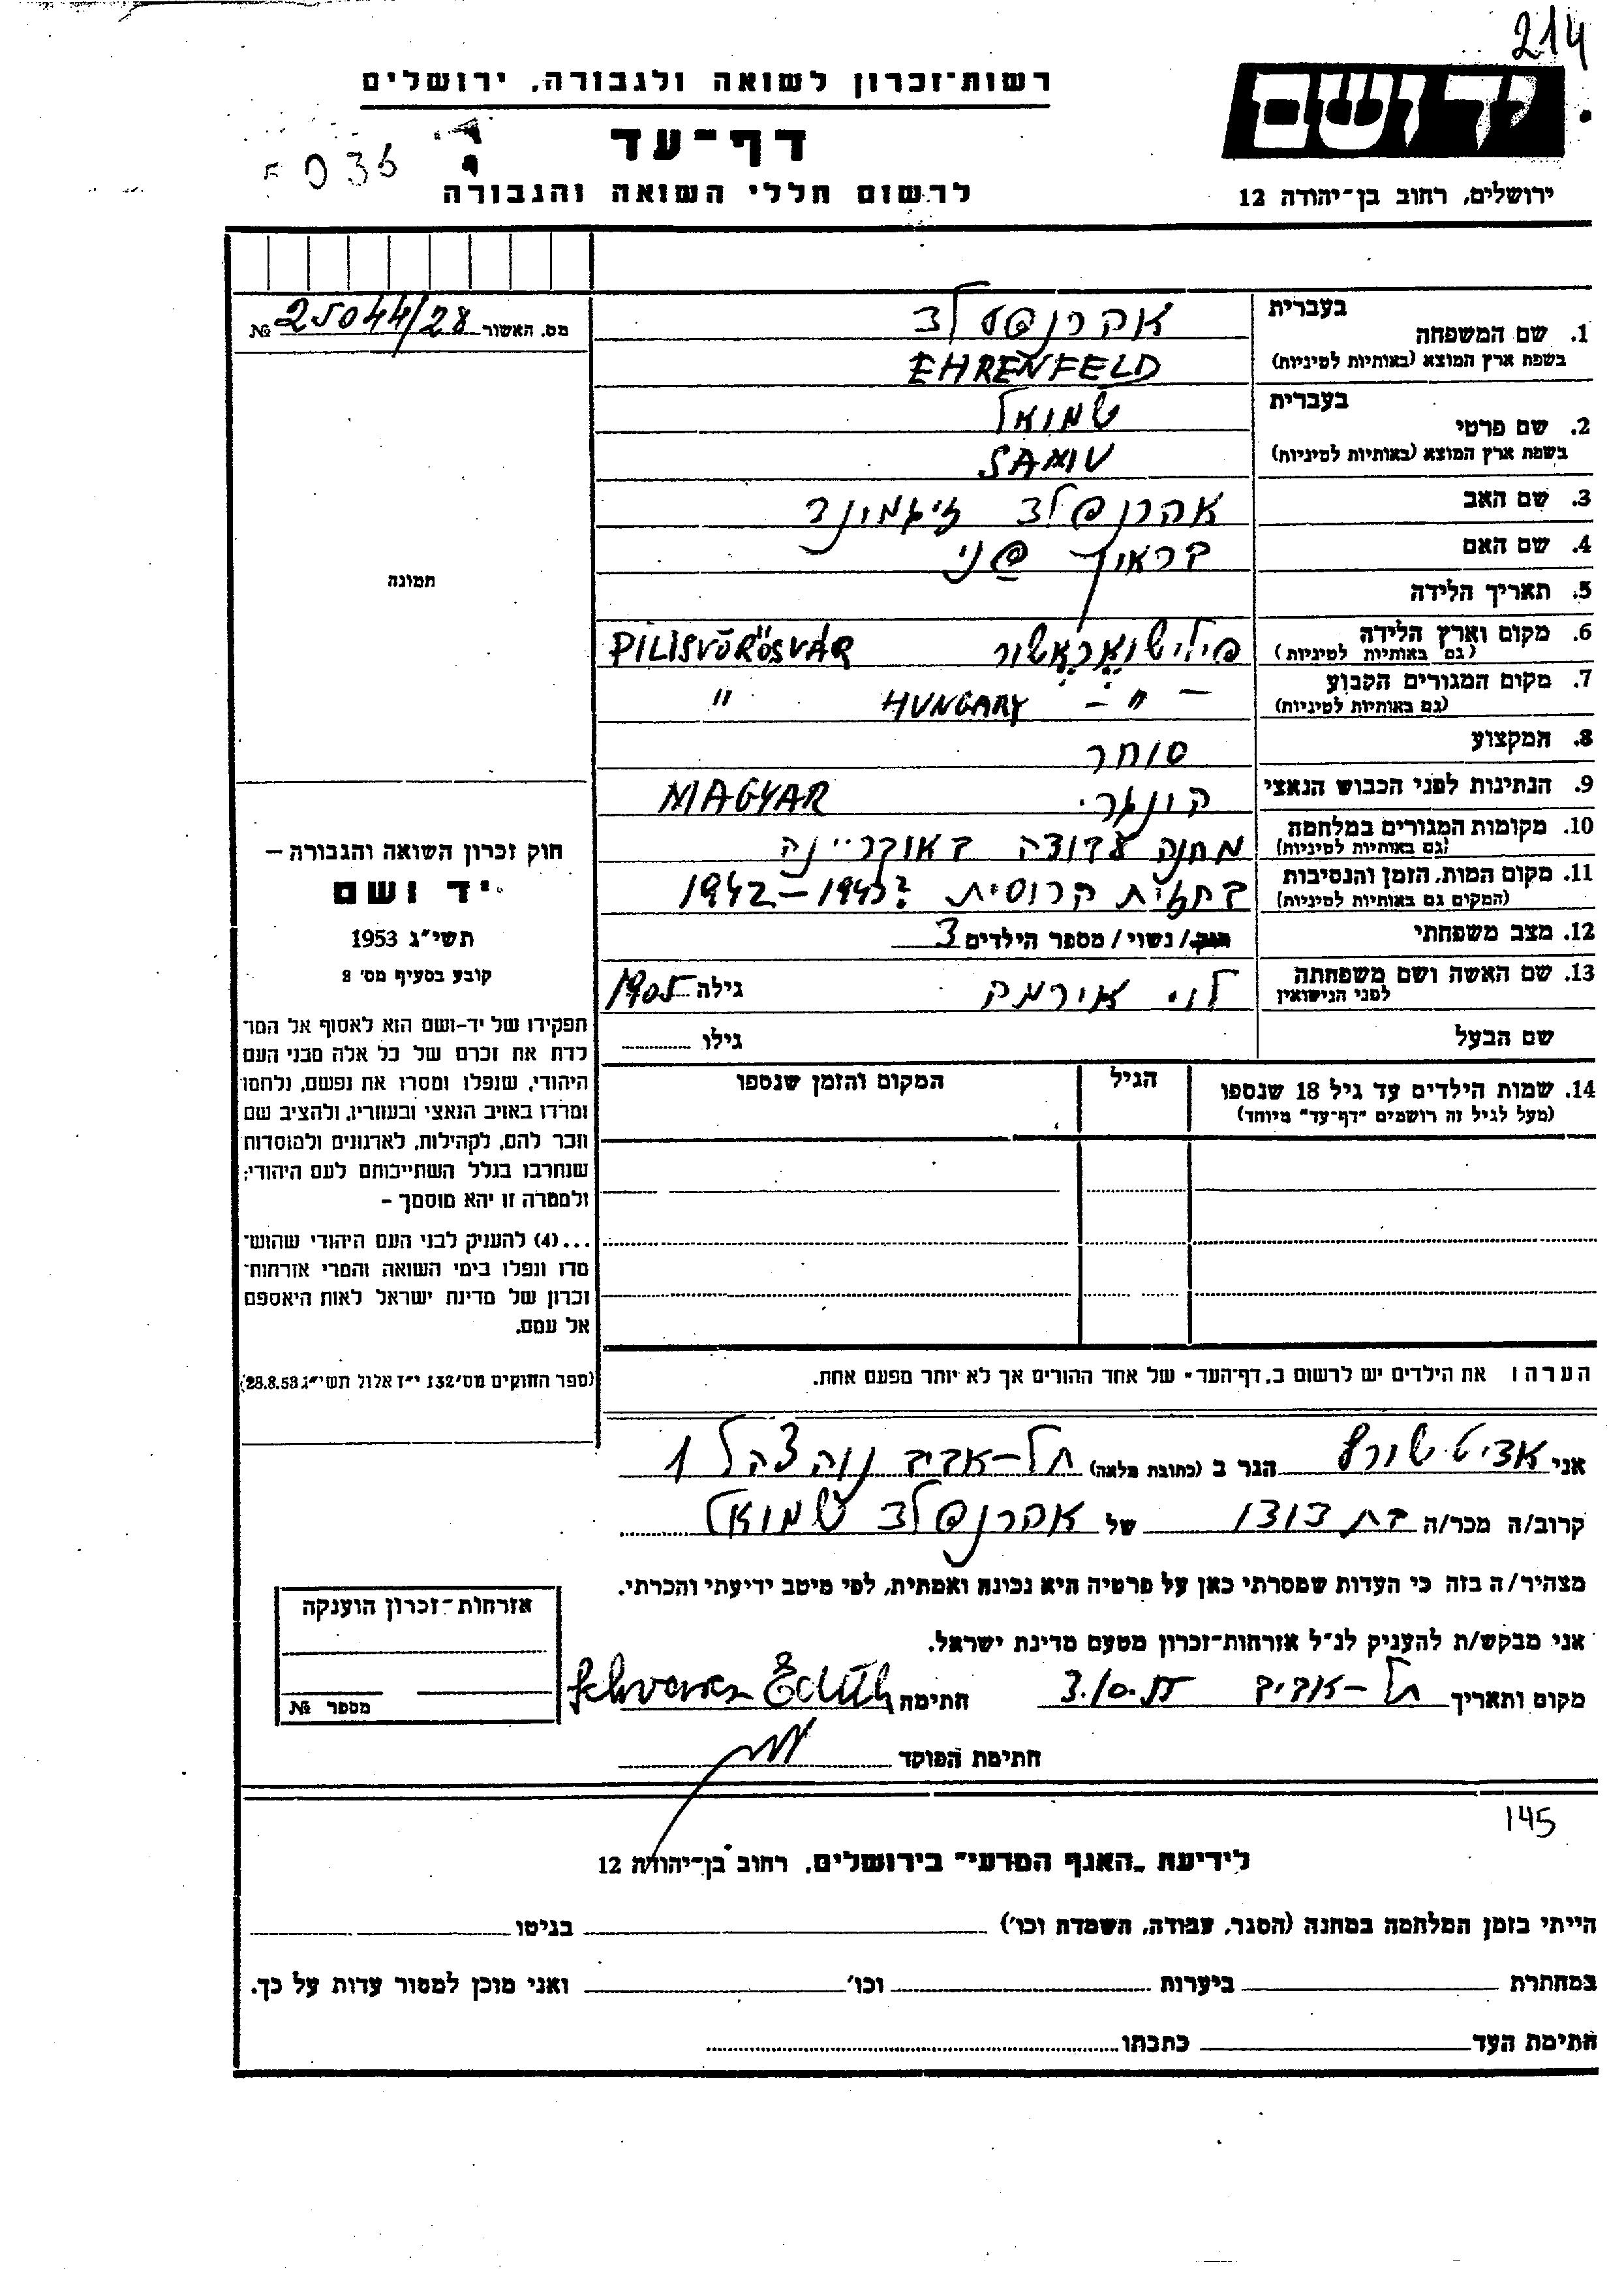 214
רשות־זכרון לשואה ולגבורה, ירושלים
יד ושם
דף־עד
לרשום חללי השואה והגבורה
ירושלים, רחוב בן־יהודה 12
מס. האשור 25044/28 №
1. שם המשפחה
בעברית
אהרנפלד
בשפת ארץ המוצא (באותיות לטיניות)
EHRENFELD
2. שם פרטי
בעברית
שמואל
בשפת ארץ המוצא (באותיות לטיניות)
SAMU
3. שם האב
אהרנפלד זיגמונד
4. שם האם
בראון פני
5. תאריך הלידה
6. מקום וארץ הלידה
(גם באותיות לטיניות)
PILISVÖRÖSVÁR
7. מקום המגורים הקבוע
(גם באותיות לטיניות)
— " — HUNGARY "
8. המקצוע
סוחר
9. הנתינות לפני הכבוש הנאצי
הונגרי. MAGYAR
10. מקומות המגורים במלחמה
(גם באותיות לטיניות)
מחנה עבודה באוקריינה
11. מקום המות, הזמן והנסיבות
(המקום גם באותיות לטיניות)
בחזית הרוסית 1942–1943?
12. מצב משפחתי
רווק / נשוי / מספר הילדים 3
13. שם האשה ושם משפחתה
לפני הנישואין
לני גילה 1905
שם הבעל
גילו
14. שמות הילדים עד גיל 18 שנספו
(מעל לגיל זה רושמים "דף־עד" מיוחד)
הגיל
המקום והזמן שנספו
הערה: את הילדים יש לרשום ב„דף־העד" של אחד ההורים אך לא יותר מפעם אחת.
תמונה
חוק זכרון השואה והגבורה —
יד ושם
תשי"ג 1953
קובע בסעיף מס' 8
תפקידו של יד-ושם הוא לאסוף אל המו־
לדת את זכרם של כל אלה מבני העם
היהודי, שנפלו ומסרו את נפשם, נלחמו
ומרדו באויב הנאצי ובעוזריו, ולהציב שם
וזכר להם, לקהילות, לארגונים ולמוסדות
שנחרבו בגלל השתייכותם לעם היהודי;
ולמטרה זו יהא מוסמך –
...(4) להעניק לבני העם היהודי שהוש־
מדו ונפלו בימי השואה והמרי אזרחות־
זכרון של מדינת ישראל לאות היאספם
אל עמם.
(ספר החוקים מס' 132 י"ז אלול תשי"ג 28.8.53)
אני אדיט שורץ הגר ב (כתובת מלאה) תל-אביב נוה צהל 1
קרוב/ה מכר/ה בת דודו של אהרנפלד שמואל
מצהיר/ה בזה כי העדות שמסרתי כאן על פרטיה היא נכונה ואמתית, לפי מיטב ידיעתי והכרתי.
אני מבקש/ת להעניק לנ"ל אזרחות־זכרון מטעם מדינת ישראל.
מקום ותאריך תל-אביב 3.10.55 חתימה Schwarcz Edith
חתימת הפוקד
אזרחות־זכרון הוענקה
מספר №
145
לידיעת „האגף המדעי" בירושלים, רחוב בן־יהודה 12
הייתי בזמן המלחמה במחנה (הסגר, עבודה, השמדה וכו') בגיטו
במחתרת ביערות וכו' ואני מוכן למסור עדות על כך.
חתימת העד כתבתו